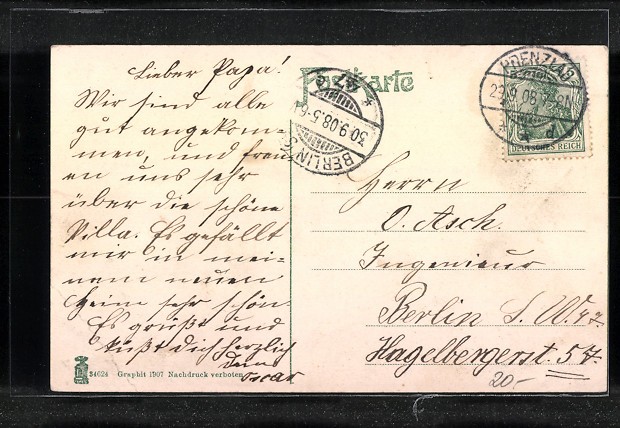 Lieber Papa!
Wir sind alle
gut angekom-
men, und freu-
en uns sehr
über die schöne
Villa. Es gefällt
mir in mei-
nem neuen
Heim sehr schön.
Es grüßt und
küßt Dich herzlich
Dein
Oscar
34624 Graphit 1907 Nachdruck verboten
Postkarte
BERLIN S.W.
30.9.08.5-6
47
PRENZLAU
29.9.08
DEUTSCHES REICH
Herrn
O. Asch.
Ingenieur
Berlin S. W. 47.
Hagelbergerst. 57.
20.-